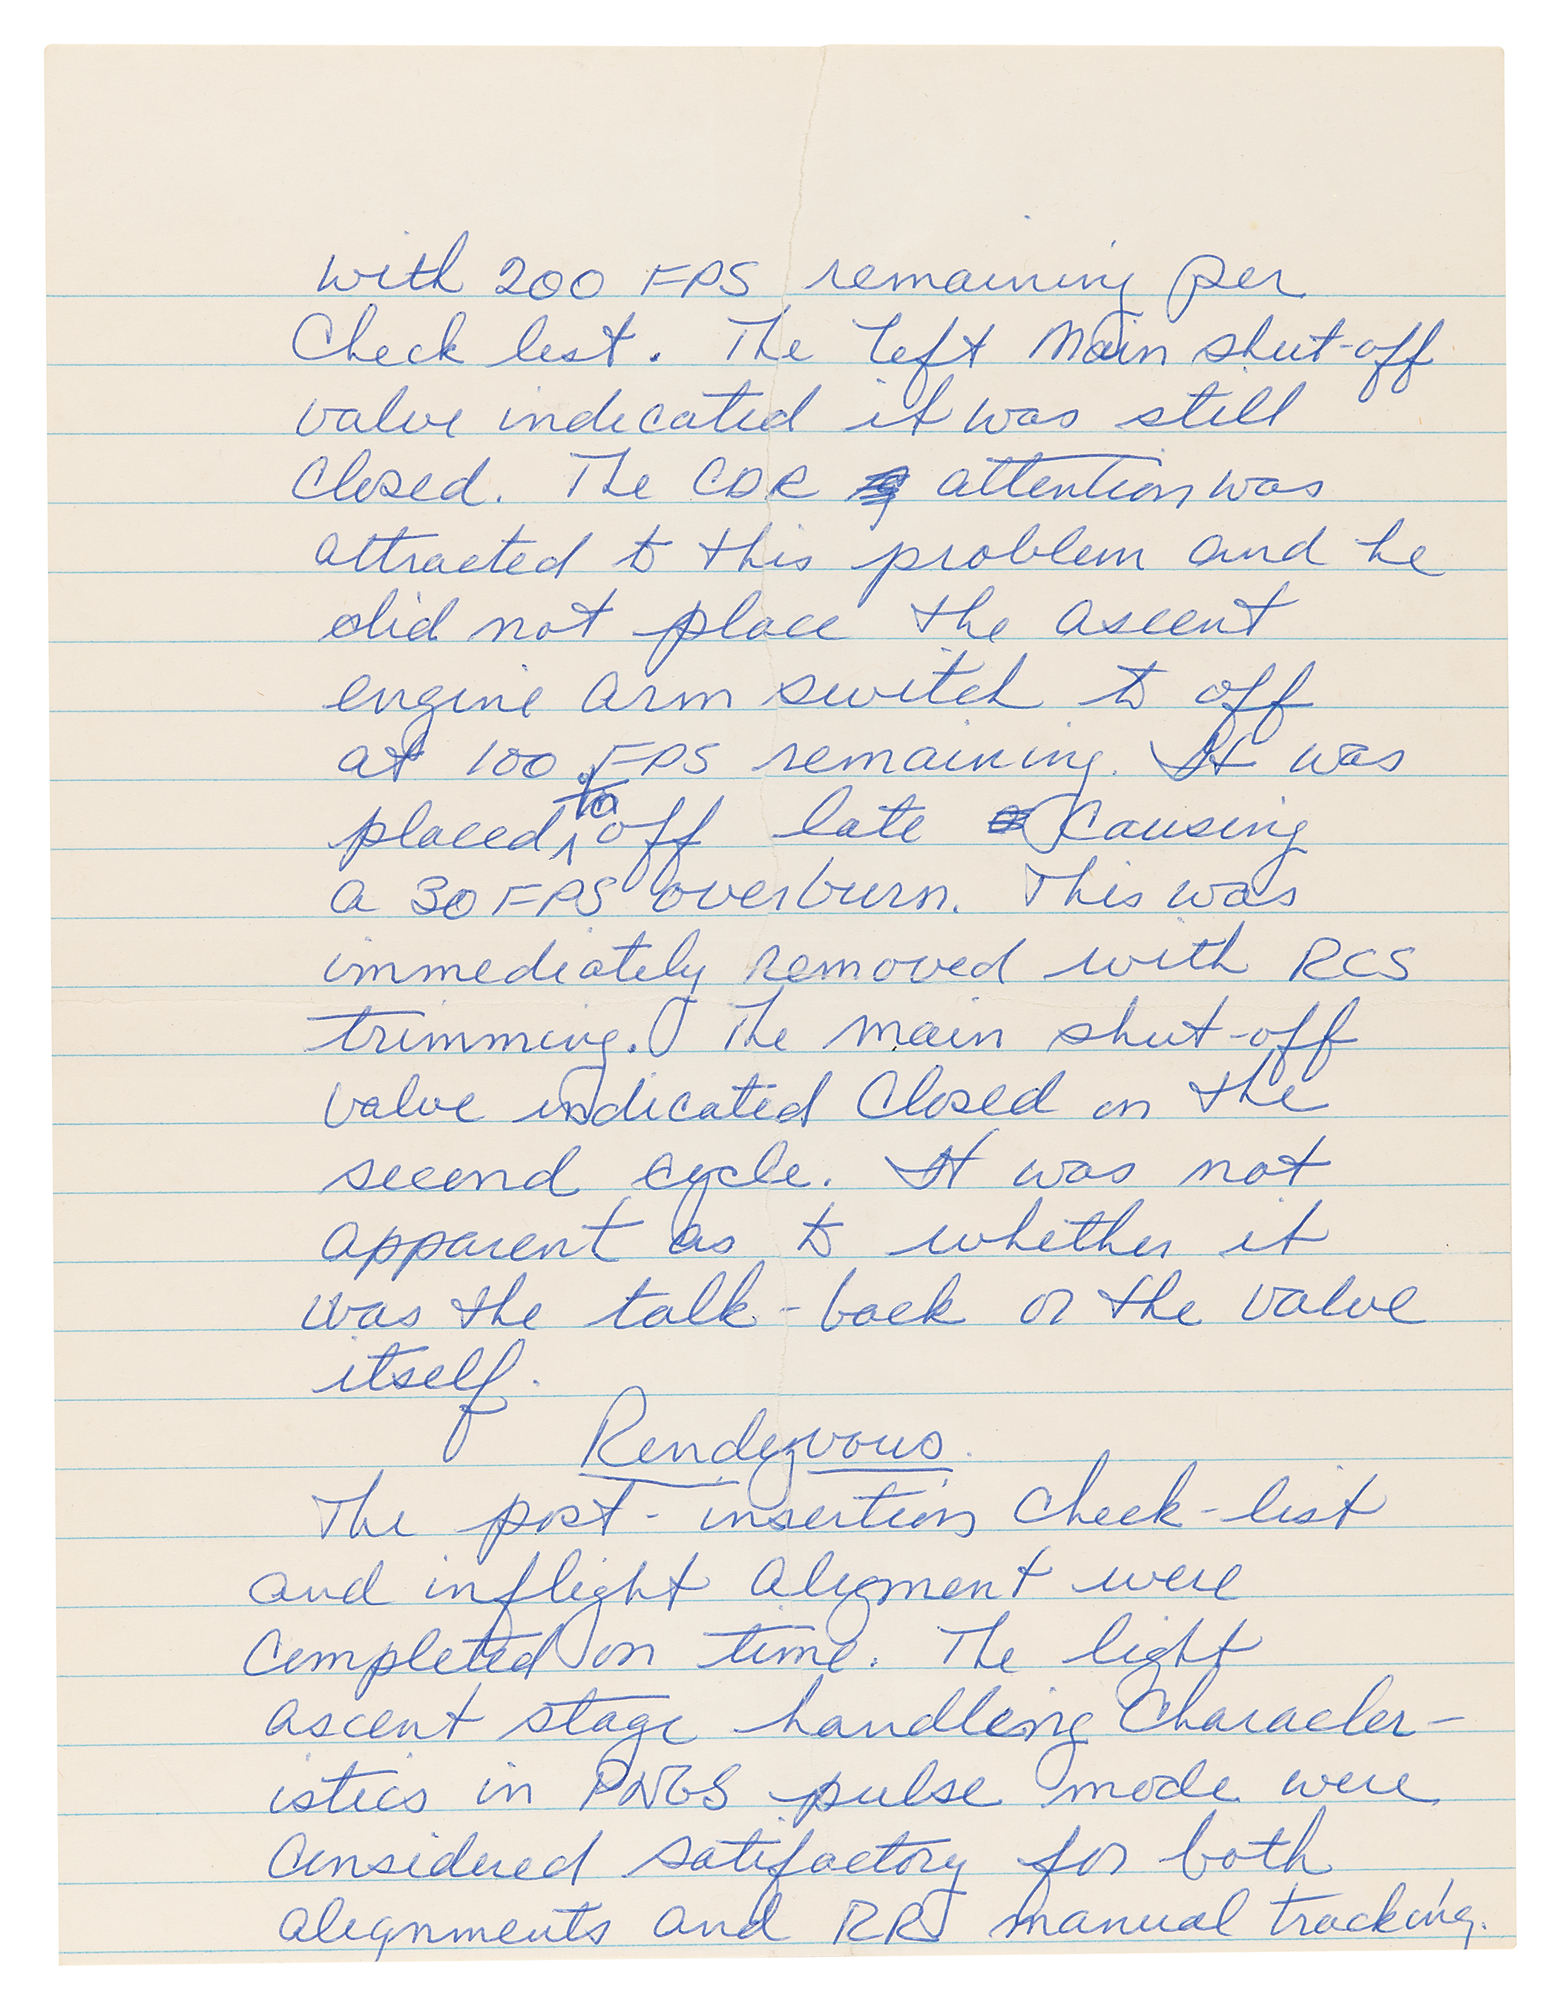 with 200 FPS remaining per
Check list. The left Main shut-off
valve indicated it was still
Closed. The CDR attention was
attracted to this problem and he
did not place the ascent
engine arm switch to off
at 100 FPS remaining. It was
placed to off late causing
a 30 FPS overburn. This was
immediately removed with RCS
trimming. The main shut-off
valve indicated Closed on the
second cycle. It was not
apparent as to whether it
was the talk-back or the valve
itself.
Rendezvous.
The post-insertion Check-list
and inflight aligment were
Completed on time. The light
ascent stage handling Character-
istics in PNGS pulse mode were
Considered satifactory for both
alignments and RR manual tracking.